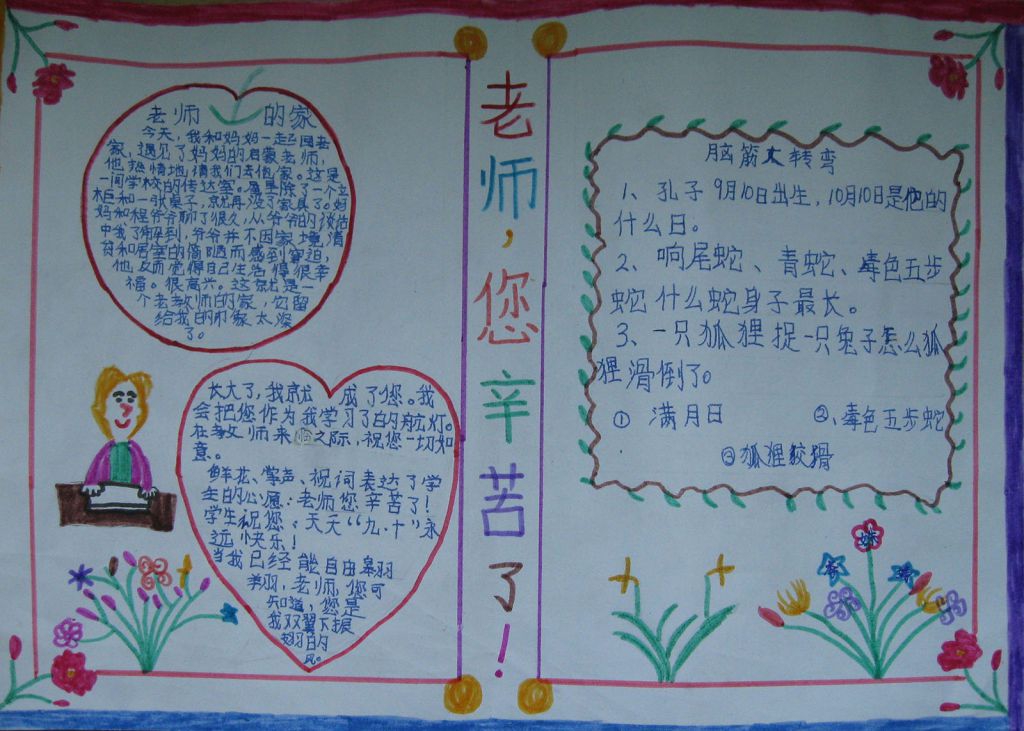 老师，您辛苦了！
老师的家
今天，我和妈妈一起回老
家，遇见了妈妈的启蒙老师，
他热情地请我们去他家。这是
一间学校的传达室。屋里除了一个立
柜和一张桌子，就再没了家具了。妈
妈和程爷爷聊了很久，从爷爷的谈话
中我了解到，爷爷并不因家境清
贫和居室的简陋而感到窘迫，
他反而觉得自己生活得很幸
福。很高兴。这就是一
个老教师的家，它留
给我的印象太深
了。
长大了，我就成了您。我
会把您作为我学习了的航灯。
在教师来临之际，祝您一切如
意。
鲜花、掌声、祝词表达了学
生的心愿：老师您辛苦了！
学生祝您：天天“九·十”永
远快乐！
当我已经能自由翱羽
美羽，老师，您可
知道，您是
我双翼下振
翅的
风。
脑筋大转弯
1、孔子9月10日出生，10月10日是他的
什么日。
2、响尾蛇、青蛇、毒色五步
蛇什么蛇身子最长。
3、一只狐狸捉一只兔子怎么狐
狸滑倒了。
① 满月日 ②、毒色五步蛇
③狐狸狡猾